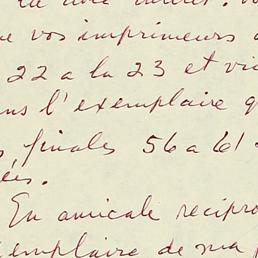 vos imprimeurs
22 a la 23 et vi
ns l'exemplaire q
finales 56 a 61
ées.
En amicale recipro
emplaire de ma